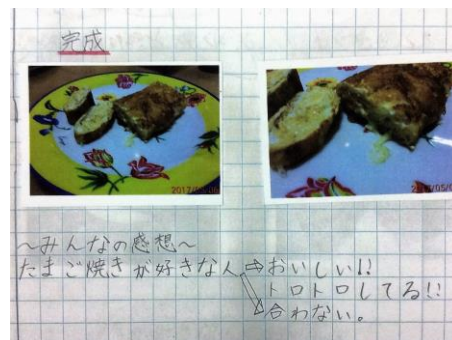 完成
2012/05/06
～みんなの感想～
たまご焼きが好きな人⇒おいしい!!
トロトロしてる!!
合わない。